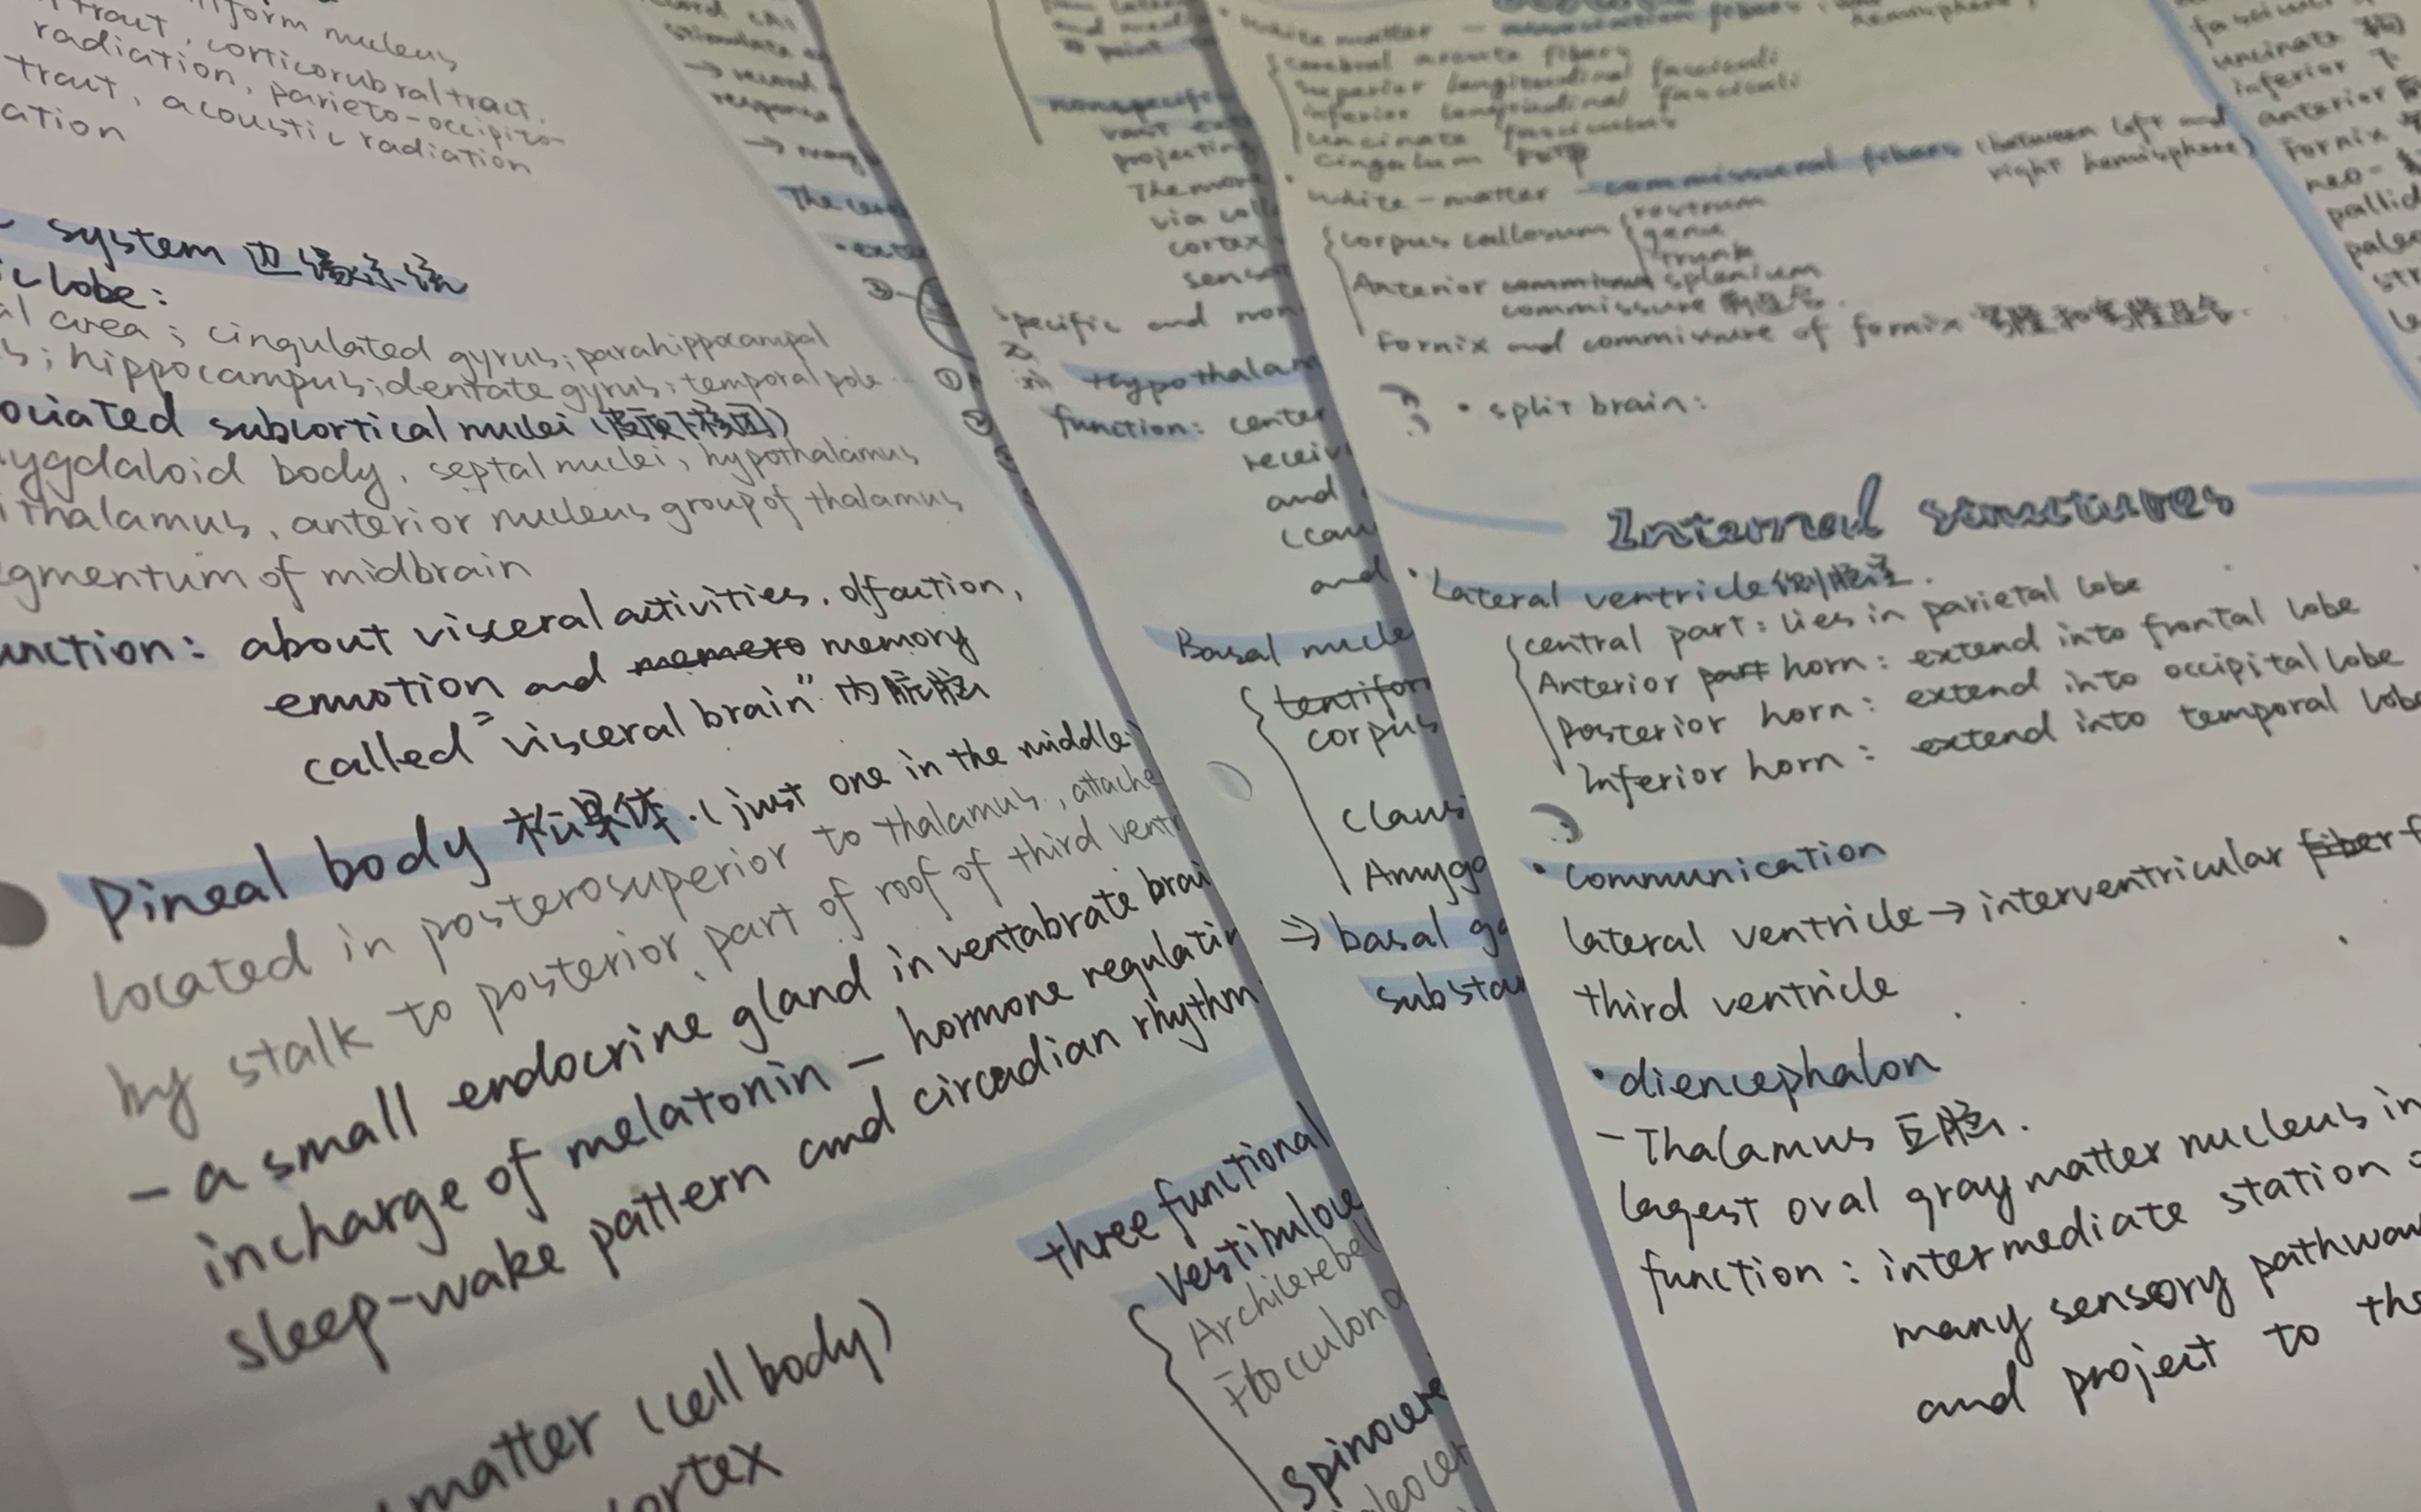 form nucleus
tract, corticorubral tract.
radiation, parieto-occipito-
tract, acoustic radiation
ation
system 边缘系统
ic lobe:
al area; cingulated gyrus; parahippocampal
s; hippocampus; dentate gyrus; temporal pole
ociated subcortical nuclei (皮质下核团)
ygdaloid body, septal nuclei, hypothalamus
ithalamus, anterior nucleus group of thalamus
egmentum of midbrain
unction: about visceral activities, olfaction,
emotion and memero memory
called "visceral brain" 内脏脑
Pineal body 松果体. (just one in the middle)
located in posterosuperior to thalamus, attache
by stalk to posterior part of roof of third ventr
- a small endocrine gland in ventabrate brai
incharge of melatonin - hormone regulatin
sleep-wake pattern and circadian rhythm
matter (cell body)
ortex
stimulate
→ record
response
→
The
•
③
①
②
and
point
nonspecif
projecting
The more
via coll
cortex
sensor
specific and non
Hypothalam
function: center
receiv
and
(cau
and
Basal nucle
{ tentifor
corpus
Claus
Amygd
⇒ basal ga
substan
three functional
vestibuloce
Archicerebell
Floccu
spinocere
leocer
white matter - association fibers
hemisphere)
{ cerebral arcuate fibers
superior longitudinal fasciculi
inferior longitudinal fasciculi
uncinate fasciculus
cingulum
• white-matter - commissural fibers (between left and
right hemisphere)
{ corpus callosum { rostrum
genu
trunk
splenium
Anterior
commissure 前连合.
Fornix and commissure of fornix 穹窿和穹窿连合.
• split brain:
Internal structures
• Lateral ventricle 侧脑室.
{ central part: lies in parietal lobe
Anterior part horn: extend into frontal lobe
Posterior horn: extend into occipital lobe
Inferior horn: extend into temporal lobe
• Communication
lateral ventricle → interventricular fiber f
third ventricle
• diencephalon
- Thalamus 丘脑.
lagest oval gray matter nucleus in
function: intermediate station o
many sensory pathway
and project to the
uncinate 钩
inferior 下
anterior 前
Fornix 穹
neo-
pallid
paleo
str